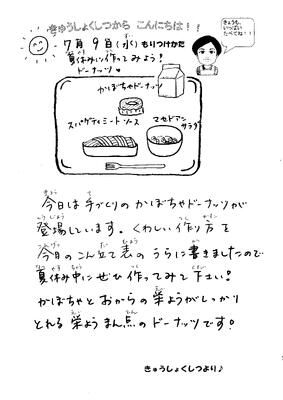 きゅうしょくしつから こんにちは！！
7月9日(水) もりつけかた
夏休みに作ってみよう！
ドーナッツ
かぼちゃドーナッツ
スパゲティミートソース
マセドアンサラダ
きょうも、いっぱいたべてね！！
今日は手づくりのかぼちゃドーナツが
登場しています。くわしい作り方を
今日のこん立て表のうらに書きましたので
夏休み中にぜひ作ってみて下さい！
かぼちゃとおからの栄ようがしっかり
とれる栄ようまん点のドーナッツです！
きゅうしょくしつより♪